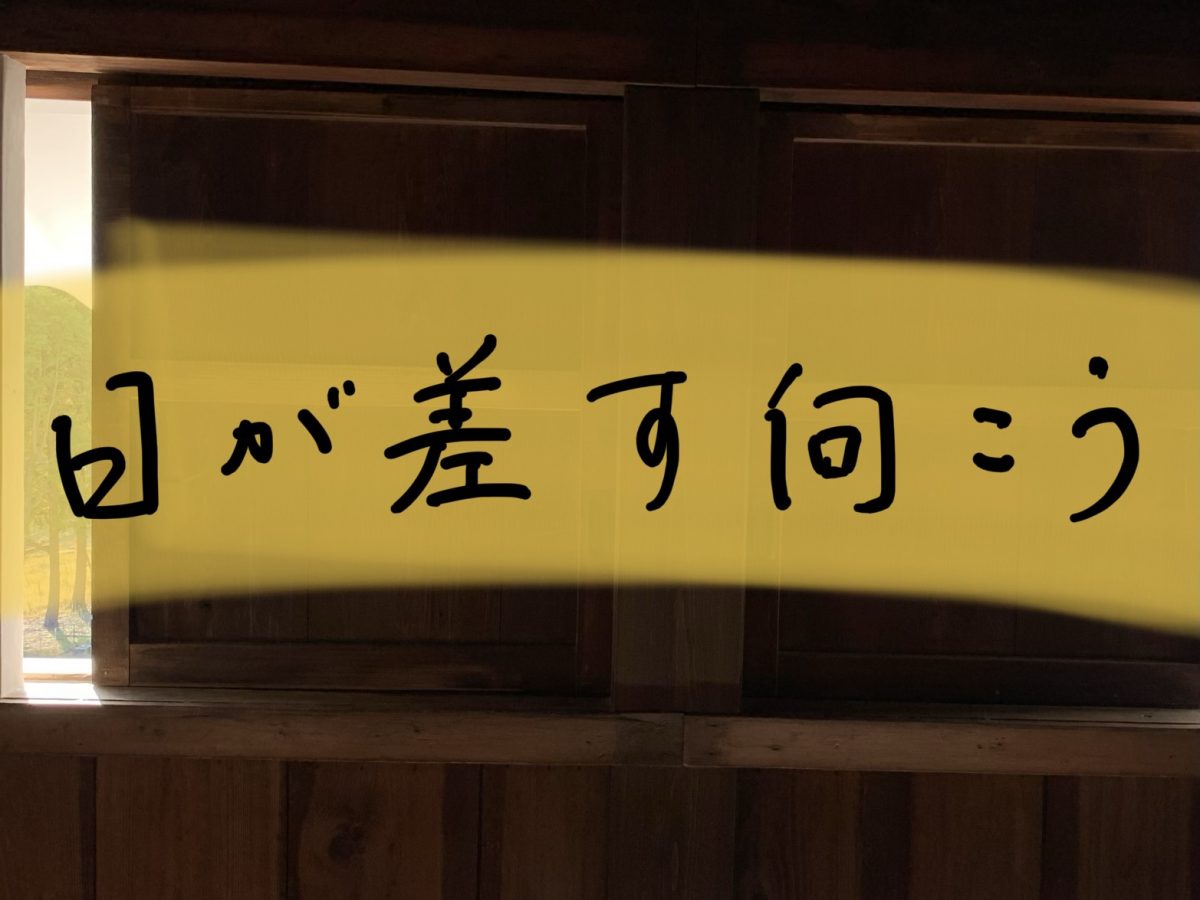 日が差す向こう